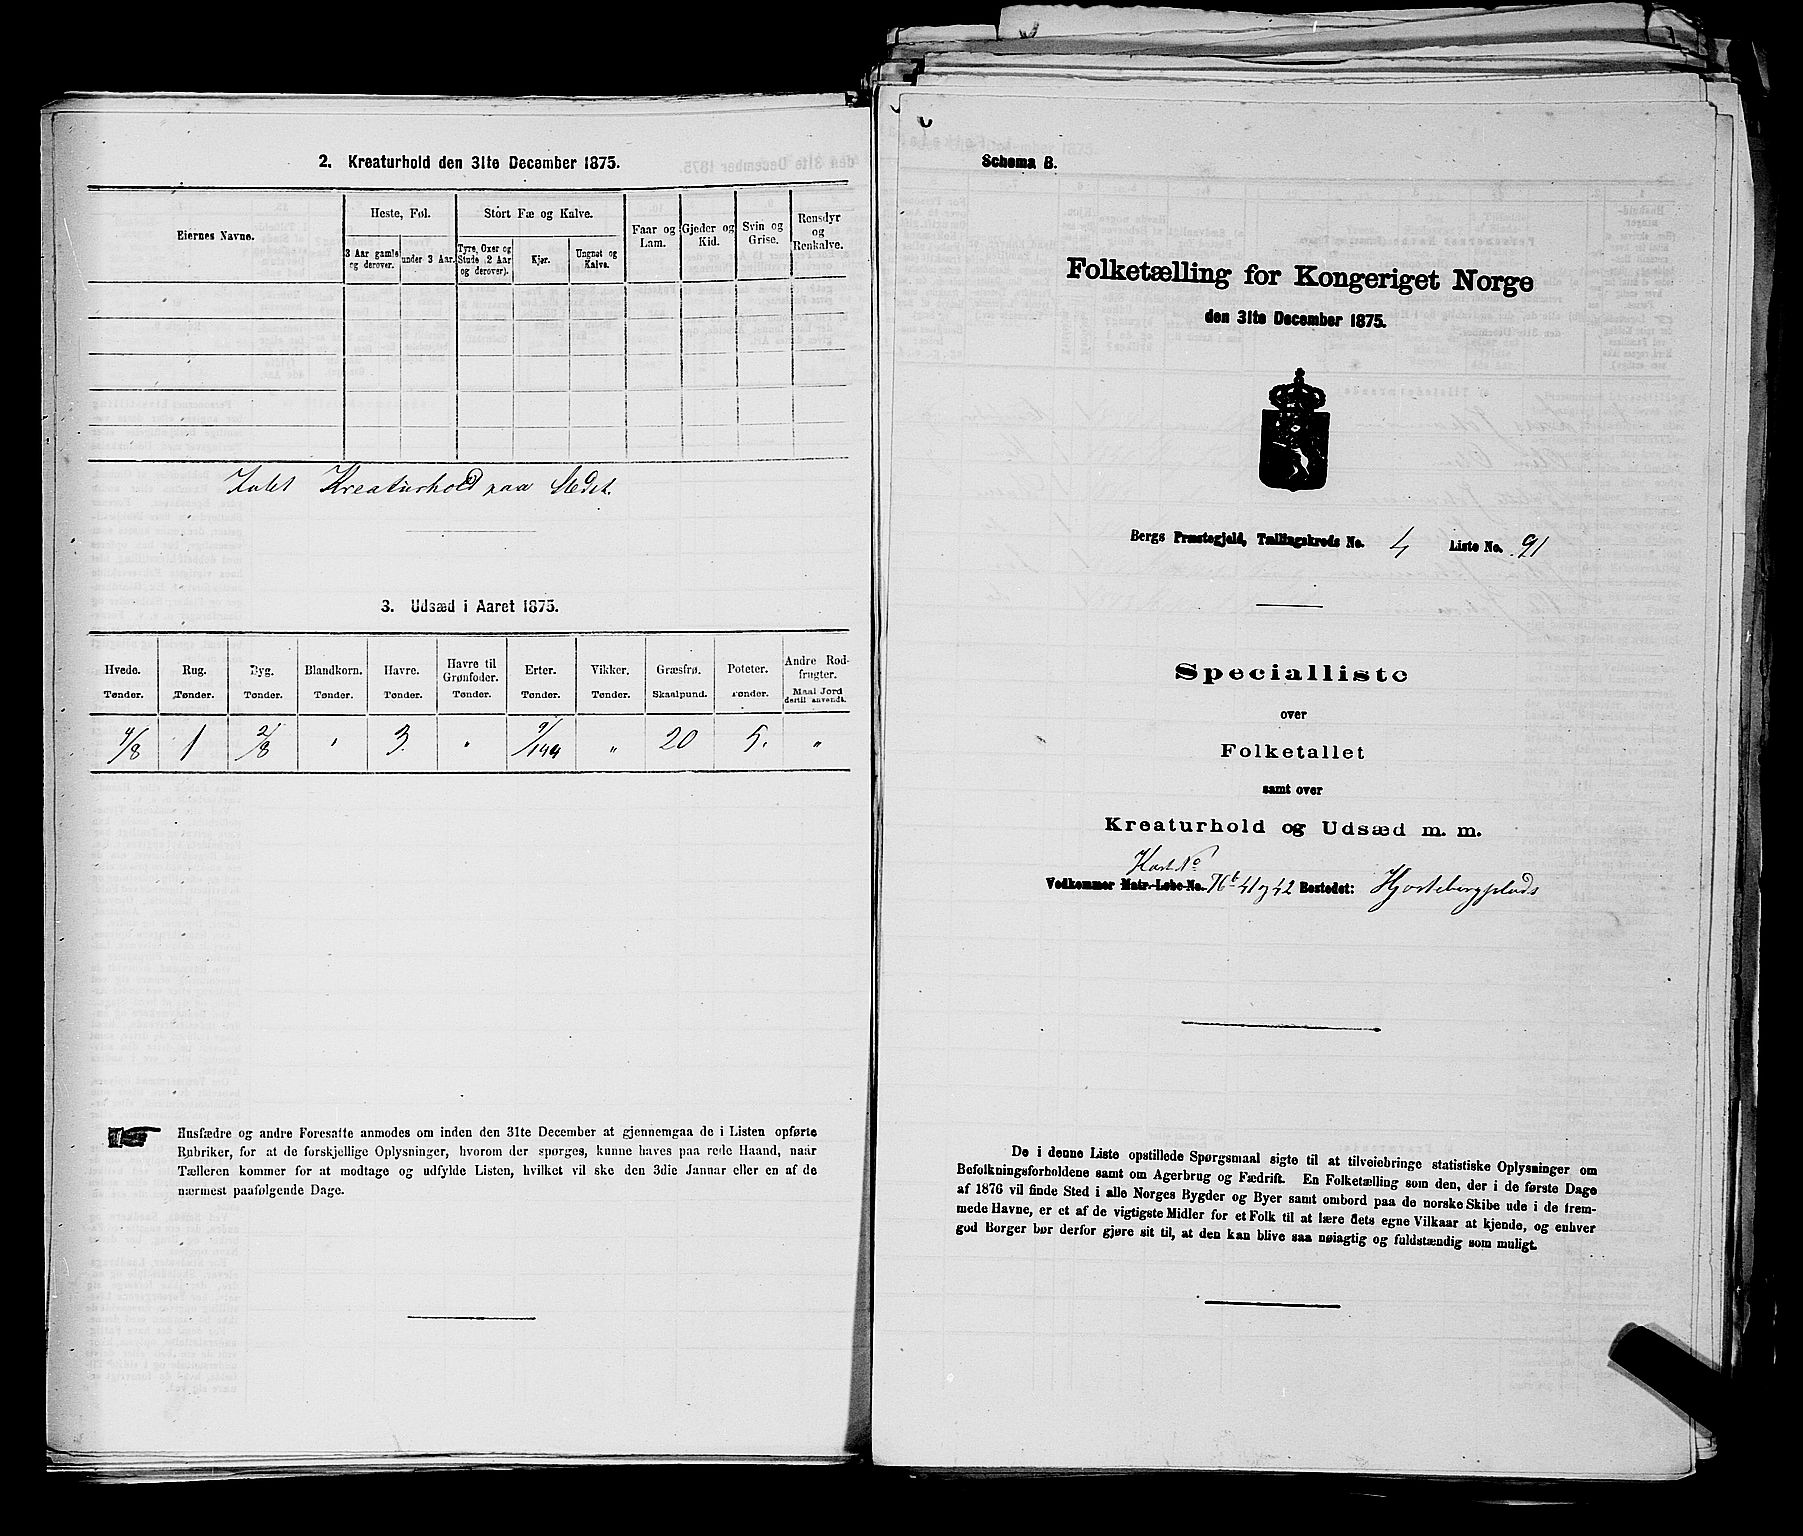 2. Kreaturhold den 31te December 1875.
Eiernes Navne.
Heste, Føl.
3 Aar gamle og derover.
under 3 Aar.
Stort Fæ og Kalve.
Tyre, Oxer og Stude (2 Aar og derover).
Kjør.
Ungnøt og Kalve.
Faar og Lam.
Gjeder og Kid.
Svin og Grise.
Rensdyr og Renkalve.
Intet Kreaturhold paa Stedet.
3. Udsæd i Aaret 1875.
Hvede. Rug. Byg. Blandkorn. Havre. Havre til Grønfoder. Erter. Vikker. Græsfrø. Poteter. Andre Rodfrugter.
Tønder. Tønder. Tønder. Tønder. Tønder. Tønder. Tønder. Tønder. Skaalpund. Tønder. Maal Jord dertil anvendt.
4/8 1 2/8 " 3 " 9/144 " 20 5. "
Husfædre og andre Foresatte anmodes om inden den 31te December at gjennemgaa de i Listen opførte
Rubriker, for at de forskjellige Oplysninger, hvorom der spørges, kunne haves paa rede Haand, naar
Tælleren kommer for at modtage og udfylde Listen, hvilket vil ske den 3die Januar eller en af de
nærmest paafølgende Dage.
Schema B.
Folketælling for Kongeriget Norge
den 31te December 1875.
Bergs Præstegjeld, Tællingskreds No. 4 Liste No. 91
Specialliste
over
Folketallet
samt over
Kreaturhold og Udsæd m. m.
Kart No
Vedkommer Matr.-Løbe-No. 76b 41 og 42 Bostedet: Hjortebergplads
De i denne Liste opstillede Spørgsmaal sigte til at tilveiebringe statistiske Oplysninger om
Befolkningsforholdene samt om Agerbrug og Fædrift. En Folketælling som den, der i de første Dage
af 1876 vil finde Sted i alle Norges Bygder og Byer samt ombord paa de norske Skibe ude i de frem-
mede Havne, er et af de vigtigste Midler for et Folk til at lære dets egne Vilkaar at kjende, og enhver
god Borger bør derfor gjøre sit til, at den kan blive saa nøiagtig og fuldstændig som muligt.